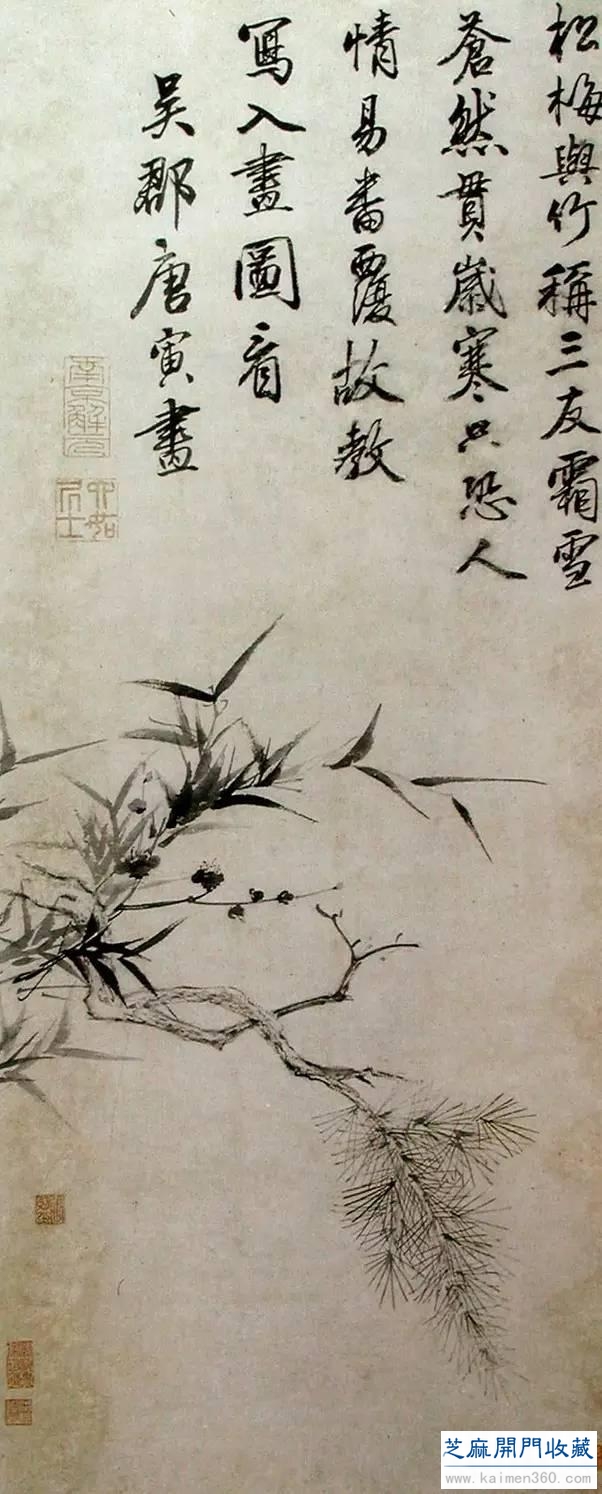 松梅與竹稱三友霜雪
蒼然貫歲寒只恐人
情易畨覆故教
寫入畫圖看
吳郡唐寅畫
南京解元
六如居士
芝麻開門收藏
www.kaimen360.com